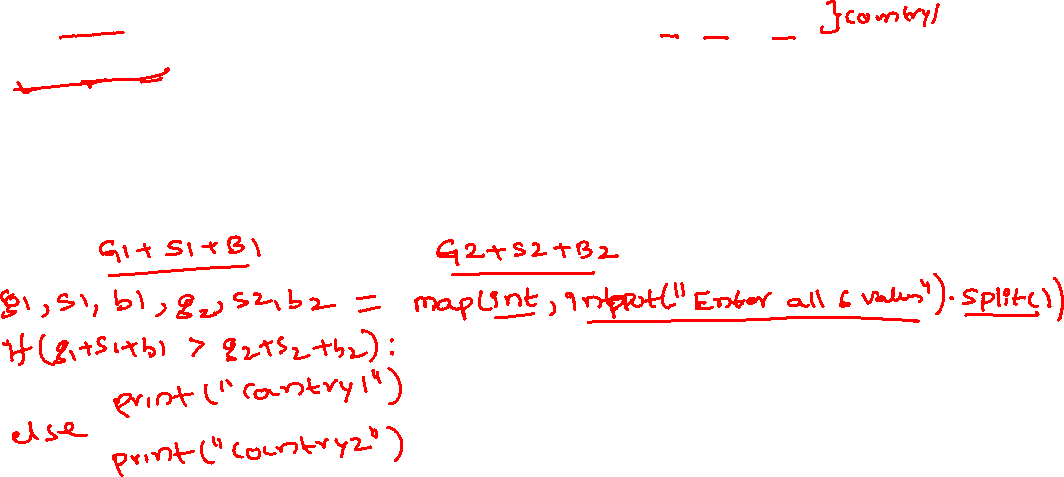 }country1
G1+S1+B1 G2+S2+B2
g1,s1,b1,g2,s2,b2 = map(int, input("Enter all 6 values").split())
if(g1+s1+b1 > g2+s2+b2):
print("country1")
else
print("country2")